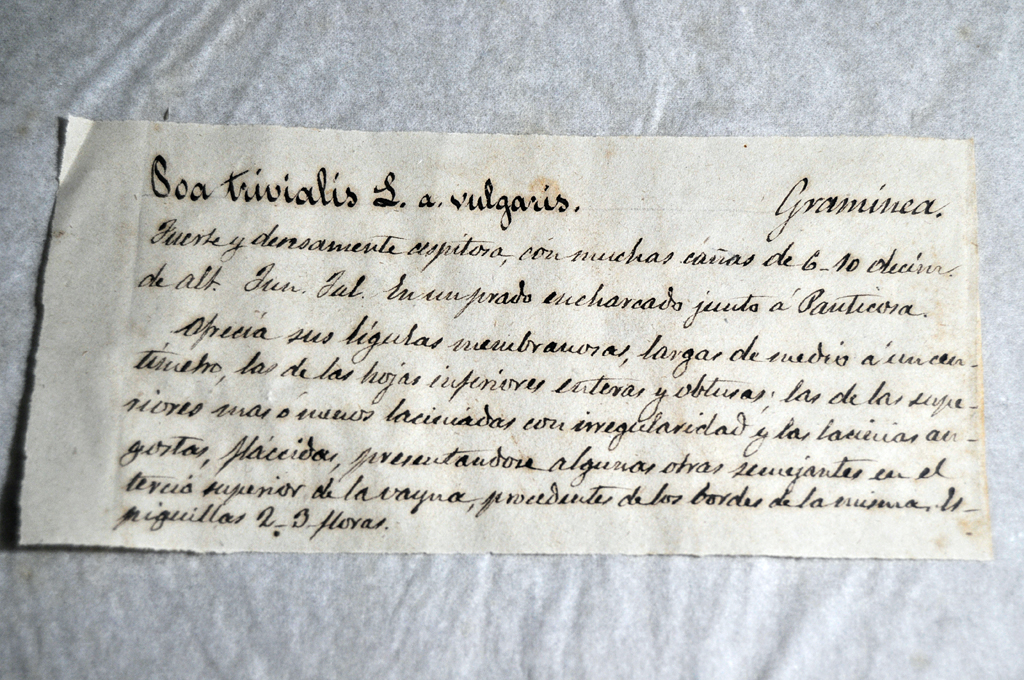 Poa trivialis L. a. vulgaris. Gramínea.
Fuerte y densamente cespitosa, con muchas cañas de 6-10 decím.
de alt. Jun. Jul. En un prado encharcado junto á Panticosa.
Ofrecía sus lígulas membranosas, largas de medio á un cen-
tímetro, las de las hojas inferiores enteras y obtusas; las de las supe-
riores mas ó menos laciniadas con irregularidad y las lacinias an-
gostas, fláccidas, presentandose algunas otras semejantes en el
tercio superior de la vayna, procedentes de los bordes de la misma. Es-
piguillas 2-3-floras.